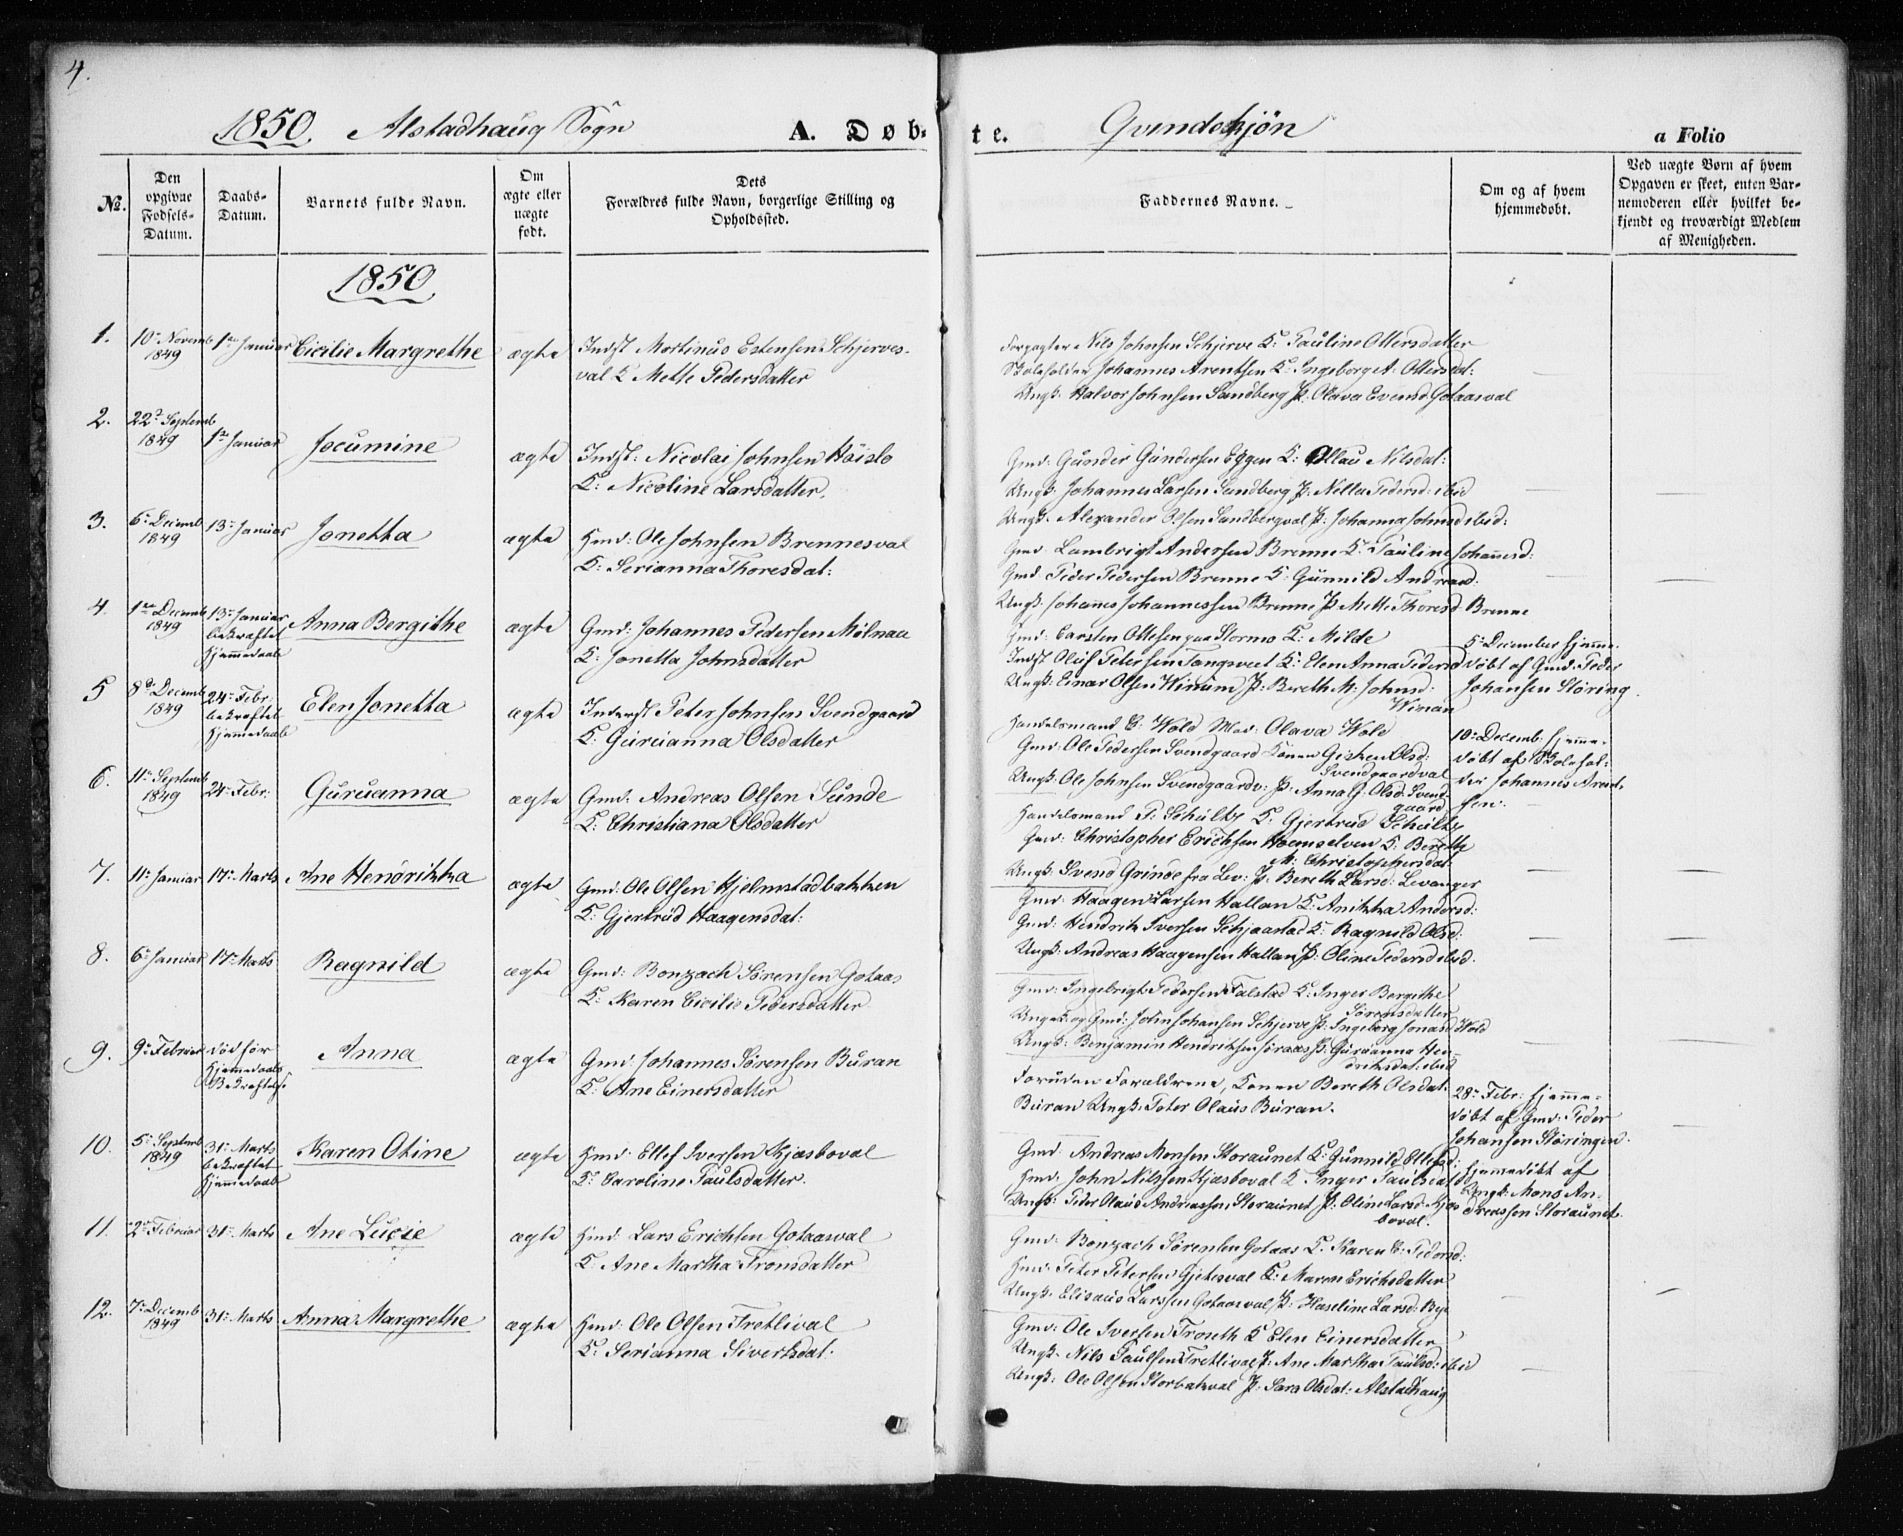 4.
1850. Alstadhaug Sogn A. Døb-
te. Qvindekjøn a Folio
№.
Den opgivne Fødsels-Datum.
Daabs-Datum.
Barnets fulde Navn.
Om ægte eller uægte født.
Dets Forældres fulde Navn, borgerlige Stilling og Opholdssted.
Faddernes Navne.
Om og af hvem hjemmedøbt.
Ved uægte Børn af hvem Opgaven er skeet, enten Barnemoderen eller hvilket bekjendt og troværdigt Medlem af Menigheden.
1850.
1. 10de Novemb 1849 1ste Januar Cicilie Margrethe ægte
Indst Mortinus Estensen Schjerves-
val K Mette Pedersdatter
Forpagter Nils Johnsen Schjerve K: Pauline Ottersdatter
Skoleholder Johannes Arentsen K: Ingeborg A: Ottersdat:
Ungk: Halvor Johnsen Sundberg P: Olava Evensd Gotaasval
2. 22de Septemb 1849 1ste Januar Jocumine ægte
Indst: Nicolai Johnsen Høislo
K: Nicoline Larsdatter.
Gmd: Gunder Gundersen Eggen K: Ollau Nilsdat:
Ungk: Johannes Larsen Sundberg P: Nilla Pedersd: ibid
Ungk. Alexander Olsen Sundbergval P: Johanna Johnsd ibid:
3. 6te Decemb 1849 13de Januar Jonetta ægte
Hmd: Ole Johnsen Brennesval
K: Serianna Thoresdat:
Gmd Lambrigt Andersen Brenne K: Pauline Johannesd:
Gmd Peder Pedersen Brenne K: Gunnild Andread:
Ungk: Johannes Johannessen Brenne P. Mette Thoresd Brenne
4. 1ste Decemb 1849 13de Januar bekræftet Hjemmedaab Anna Bergithe ægte
Gmd: Johannes Pedersen Mølnaa
K: Jonetta Johnsdatter
Gmd: Carsten Ottesen paa Stormo K: Milde
Indst Oluf Petersen Tangsveet K: Elen Anna Pedersd
Ungk: Einar Olsen Winum P: Bereth M: Johnsd:
Winan
5te December hjemme-
døbt af Gmd: Peder
Johansen Støring.
5 8de Decemb 1849 24de Febr: bekræftet Hjemmedaab Elen Jonetta ægte
Inderst Peter Johnsen Svendgaard
K: Guruanna Olsdatter
Handelsmand E: Wold Mad: Olava Wold
Gmd: Ole Pedersen Svendgaard Konen Gisken Olsd:
Svendgaardval
Ungk: Ole Johnsen Svendgaardv: P: Anna G. Olsd: Svend
gaard
10de Decemb: hjemme-
døbt af Skolehol-
der Johannes Arent-
sen.
6. 11te Septemb 1849 24de Febr: Guruanna ægte
Gmd: Andreas Olsen Sunde
K: Christiana Olsdatter
Handelsmand P: Schultz K: Gjertrud Schultz
Gmd: Christopher Erichsen Hoemselven K: Berethe
M: Christophersdat:
Ungk: Svend Grinde fra Lev: P: Bereth Larsd: Levanger
7. 11te Januar 17de Marts Ane Hendrikka ægte
Gmd: Ole Olsen Hjelmstadbakken
K: Gjertrud Haagensdat:
Gmd: Haagen Larsen Hallan K: Anikka Andersd:
Gmd: Hendrik Iversen Schjaastad K: Ragnild Olsd:
Ungk: Andreas Haagensen Hallan P: Oline Pedersd ibid.
8. 6te Januar 17de Marts Ragnild ægte
Gmd: Bonzach Sørensen Gotaas
K: Karen Cicilie Pedersdatter
Gmd: Ingebrigt Pedersen Falstad K: Inger Bergithe
Sørensdatter
Ungk: og Gmd: John Johansen Schjerve P: Ingeborg Jonasd Wold
Ungk: Benjamin Hendriksen Joraas P: Guruanna Hen-
driksdat: ibid
9. 9de Februar død før Hjemmedaabs Bekræftelse Anna ægte
Gmd: Johannes Sørensen Buran
K: Ane Einersdatter
Foruden Forældrene, Konen Bereth Olsdat:
Buran Ungk: Peter Olaus Buran.
28de Febr: hjemme-
døbt af Gmd: Peder
Johansen Støringen.
10. 5te Septemb 1849 31te Marts bekræftet Hjemmedaab Karen Otine ægte
Hmd: Ellef Iversen Kjæsboval
K: Caroline Paulsdatter.
Gmd: Andreas Monsen Storaunet K: Gunnild Ellefsd:
Hmd: John Nilssen Kjæsboval K Inger Paulsdat
Ungk: Peter Olaus Andreassen Storaunet P: Oline Larsd: Kjæs
boval.
Hjemmedøbt af
Ungk: Mons An-
dreassen Storaunet.
11. 2den Februar 31te Marts Ane Lucie ægte
Hmd: Lars Erichsen Gotaasval
K: Ane Martha Tronsdatter
Gmd: Bonzach Sørensen Gotaas K. Karen C: Pedersd:
Hmd: Peter Petersen Gjetesval K: Maren Erichsdatter
Ungk. Elisæus Larssen Gotaasval P: Haseline Larsd: Bye
12. 7de Decemb 1849 31te Marts Anna Margrethe ægte
Hmd: Ole Olsen Tretlival
K: Serianna Sivertsdat.
Gmd: Ole Iversen Troseth K Elen Einersdatter
Ungk. Nils Paulsen Tretlival P: Ane Martha Paulsd: ibid
Ungk: Ole Olsen Storbakval P. Sara Olsdat: Alstadhaug